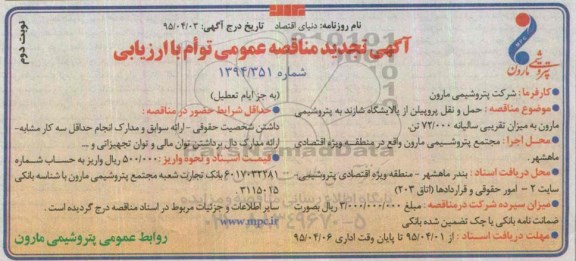 نام روزنامه: دنیای اقتصاد تاریخ درج آگهی: ۹۵/۰۴/۰۳
نوبت دوم
آگهی تجدید مناقصه عمومی توأم با ارزیابی
شماره ۱۳۹۴/۳۵۱
پتروشیمی مارون
کارفرما: شرکت پتروشیمی مارون
موضوع مناقصه: حمل و نقل پروپیلن از پالایشگاه شازند به پتروشیمی
مارون به میزان تقریبی سالیانه ۷۲/۰۰۰ تن.
محل اجرا: مجتمع پتروشیمی مارون واقع در منطقه ویژه اقتصادی
ماهشهر.
محل دریافت اسناد: بندر ماهشهر - منطقه ویژه اقتصادی پتروشیمی-
سایت ۲ - امور حقوقی و قراردادها (اتاق ۲۰۳)
میزان سپرده شرکت در مناقصه: مبلغ ۳/۰۰۰/۰۰۰/۰۰۰ ریال بصورت
ضمانت نامه بانکی یا چک تضمین شده بانکی
مهلت دریافت اسناد: از ۹۵/۰۴/۰۱ تا پایان وقت اداری ۹۵/۰۴/۰۶
(به جز ایام تعطیل)
حداقل شرایط حضور در مناقصه:
داشتن شخصیت حقوقی - ارائه سوابق و مدارک انجام حداقل سه کار مشابه-
ارائه مدارک دال برداشتن توان مالی و توان تجهیزاتی و ...
قیمت اسناد و نحوه واریز: ۵۰۰/۰۰۰ ریال واریز به حساب شماره
۶۰۱۷۰۳۲۲۸۱ بانک تجارت شعبه مجتمع پتروشیمی مارون با شناسه بانکی
۳۱۱۵۰۱۵
سایر اطلاعات و جزئیات مربوط در اسناد مناقصه درج گردیده است.
www.mpc.ir
روابط عمومی پتروشیمی مارون
ParsNamadData